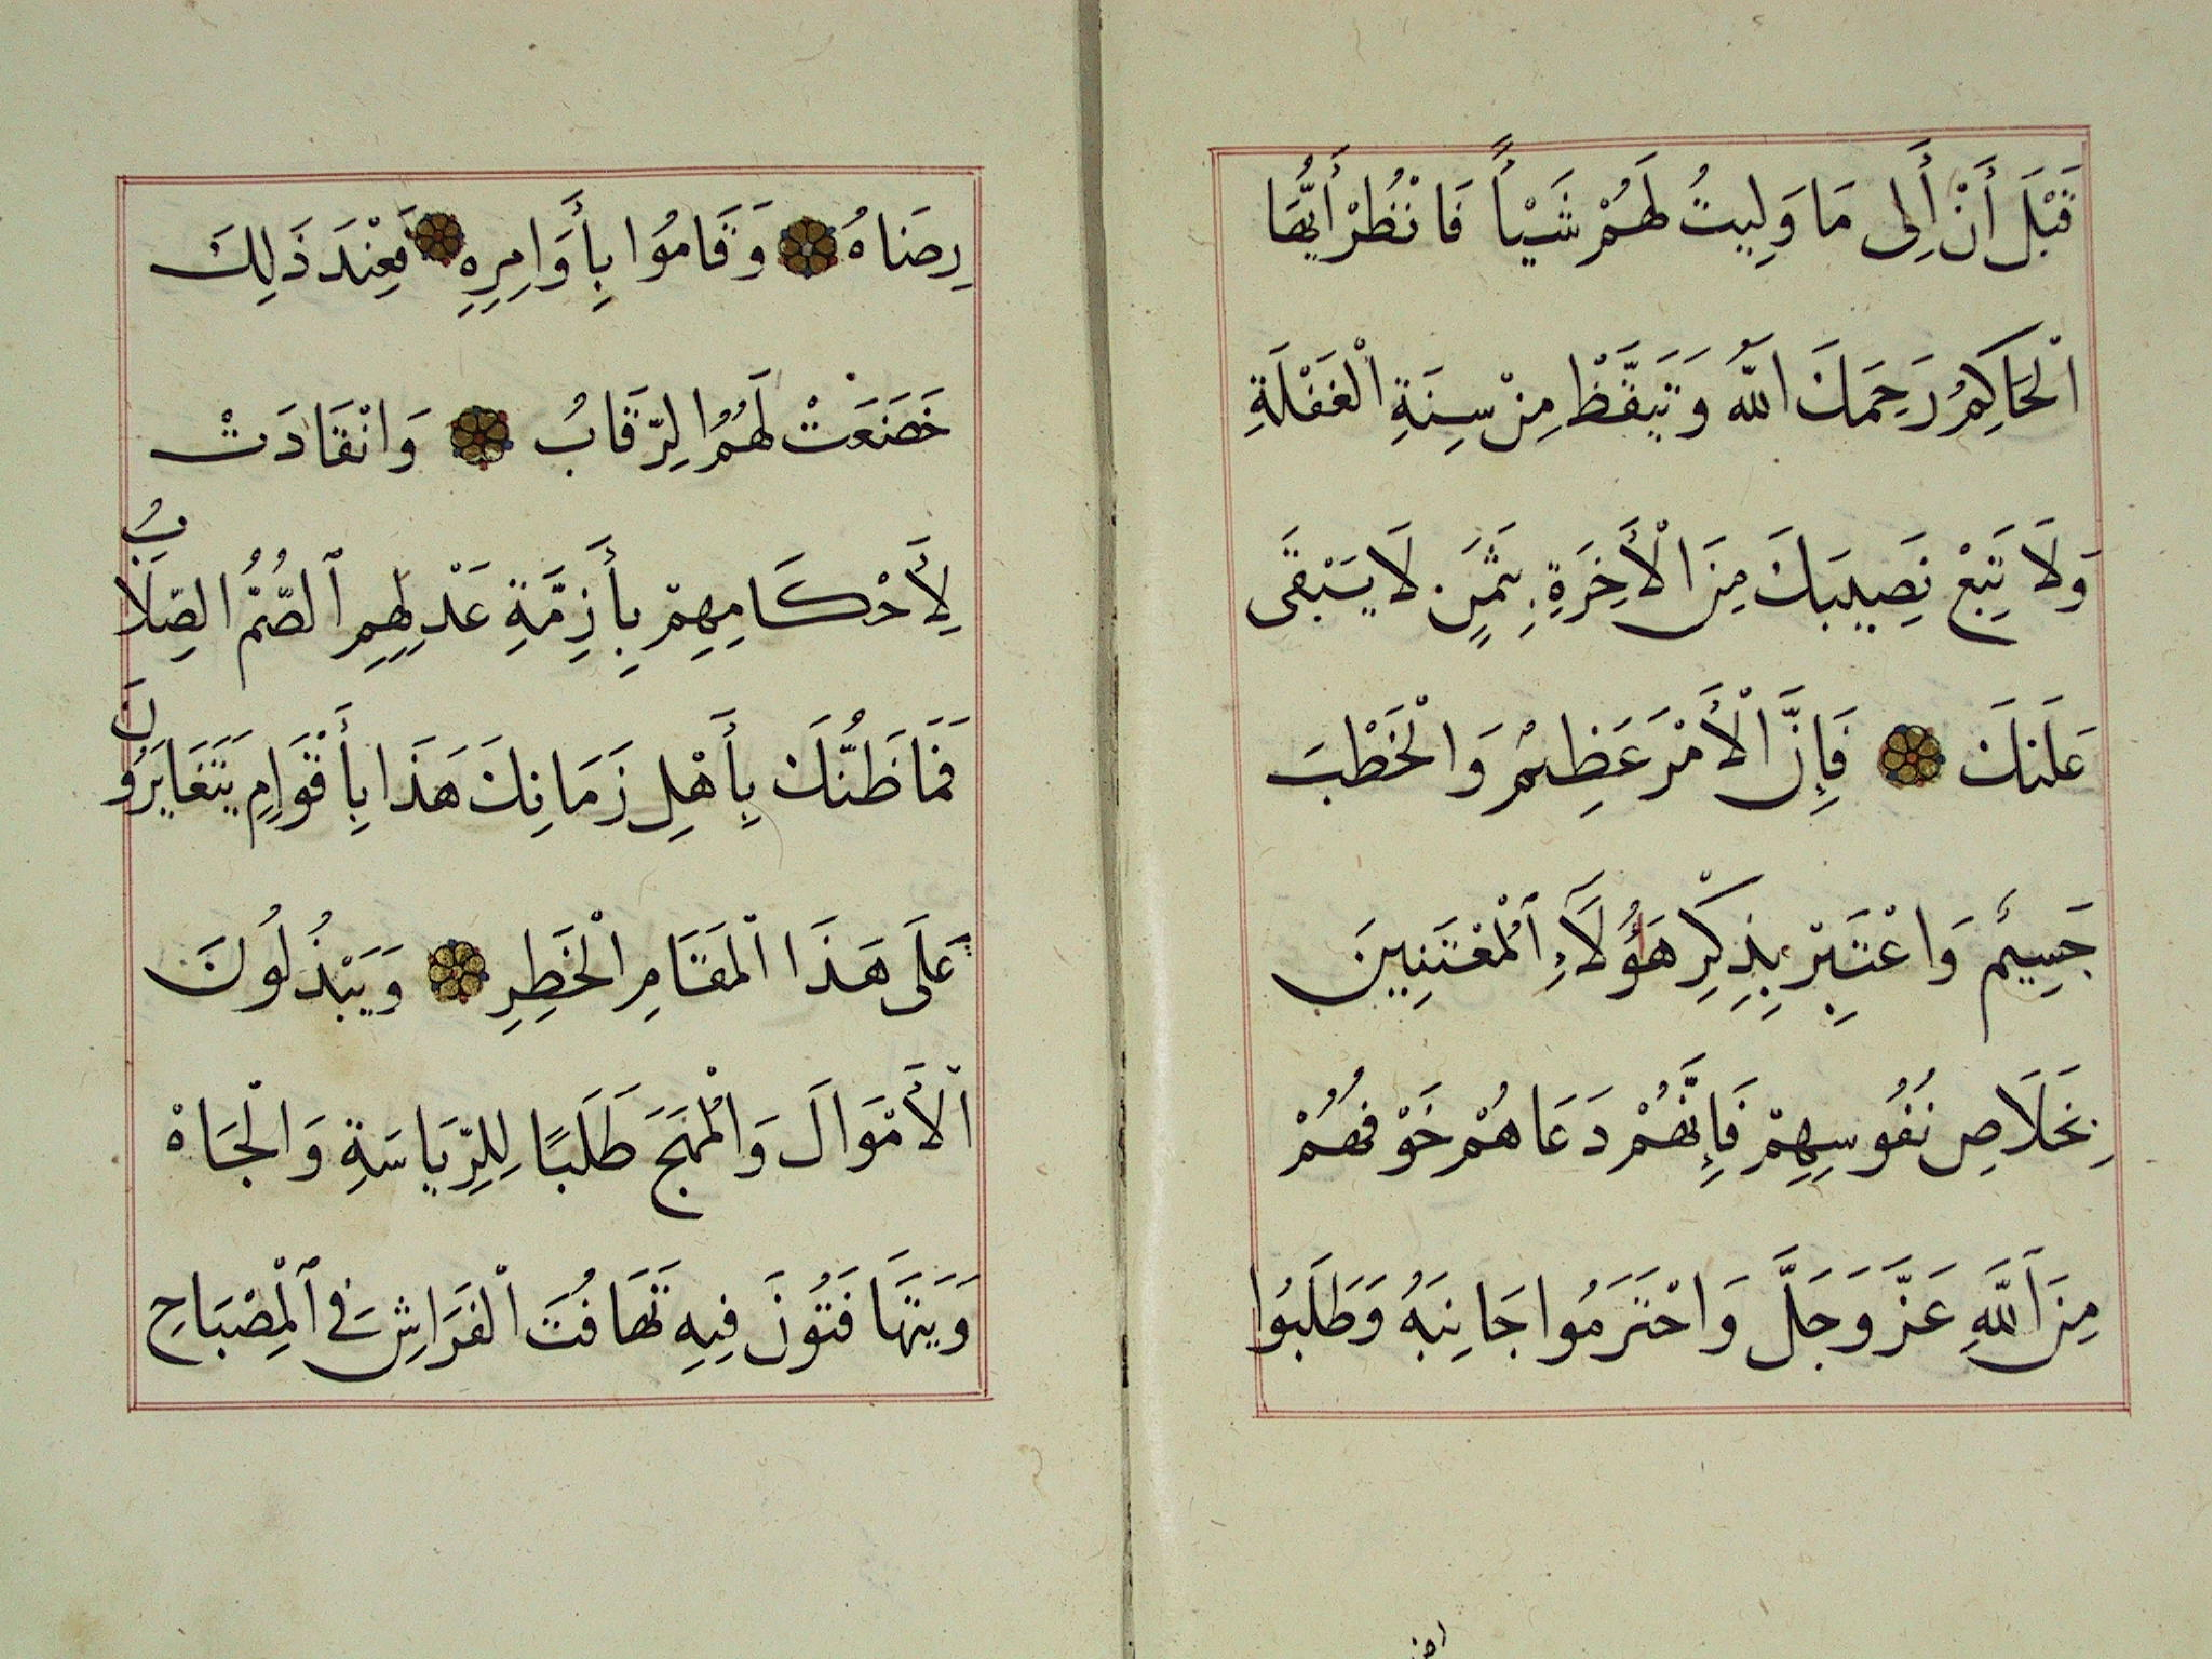 قَبْلَ أَنْ أَلِى مَا وَلِيتُ لَهُمْ شَيْأً فَانْظُرْ أَيُّهَا
الْحَاكِمُ رَحِمَكَ اللّٰهُ وَتَيَقَّظْ مِنْ سِنَةِ الْغَفْلَةِ
وَلَا تَبِعْ نَصِيبَكَ مِنَ الْأَخِرَةِ بِثَمَنٍ لَا يَبْقَى
عَلَيْكَ فَإِنَّ الْأَمْرَ عَظِيمٌ وَالْخَطْبَ
جَسِيمٌ وَاعْتَبِرْ بِذِكْرِ هَؤُلَاءِ الْمُعْتَنِينَ
بِخَلَاصِ نُفُوسِهِمْ فَإِنَّهُمْ دَعَاهُمْ خَوْفُهُمْ
مِنَ اللَّهِ عَزَّ وَجَلَّ وَاحْتَرَمُوا جَانِبَهُ وَطَلَبُوا
رِضَاهُ وَقَامُوا بِأَوَامِرِهِ فَعِنْدَ ذَلِكَ
خَضَعَتْ لَهُمُ الرِّقَابُ وَانْقَادَتْ
لِأَحْكَامِهِمْ بِأَزِمَّةِ عَدْلِهِمِ الصُّمُّ الصِّلَابُ
فَمَا ظَنُّكَ بِأَهْلِ زَمَانِكَ هَذَا بِأَقْوَامٍ يَتَغَايَرُونَ
عَلَى هَذَا الْمَقَامِ الْخَطِرِ وَيَبْذُلُونَ
الْأَمْوَالَ وَالْمُهَجَ طَلَبًا لِلرِّيَاسَةِ وَالْجَاهْ
وَيَتَهَافَتُونَ فِيهِ تَهَافُتَ الْفَرَاشِ فِي الْمِصْبَاحِ